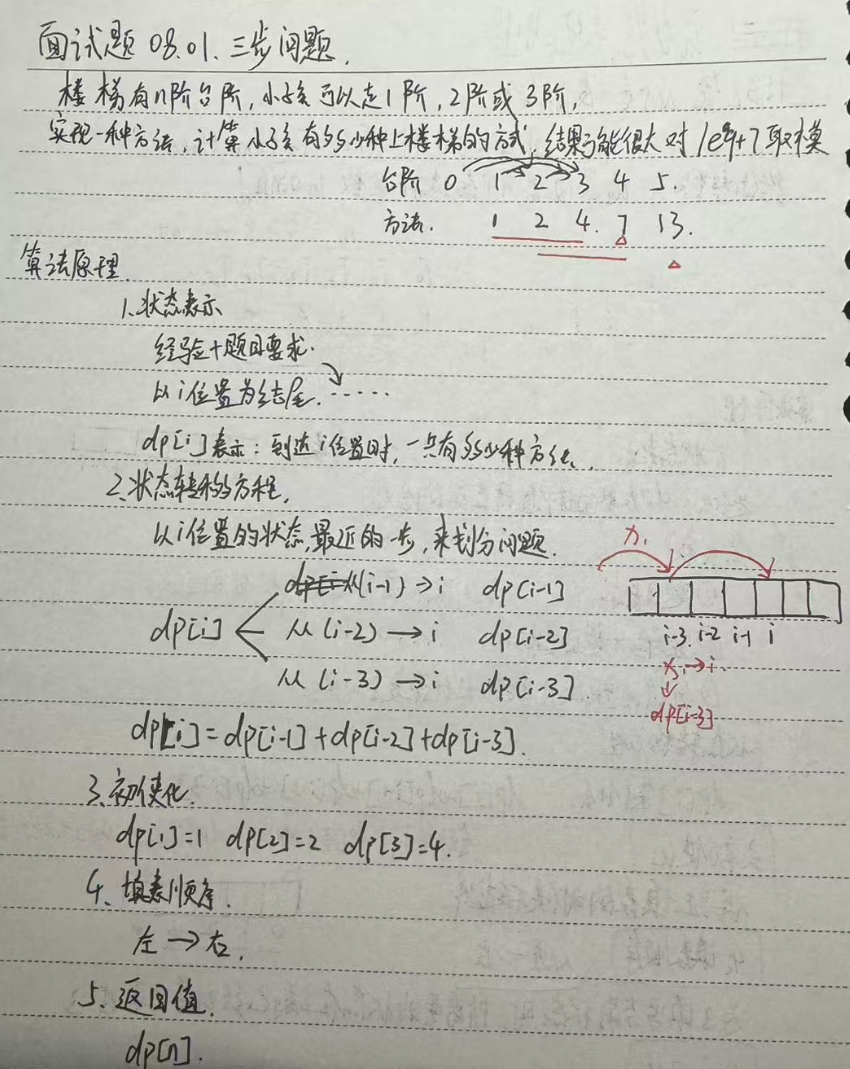 面试题 08.01. 三步问题.
楼梯有n阶台阶,小孩可以走1阶,2阶或3阶,
实现一种方法,计算小孩有多少种上楼梯的方式.结果可能很大 对1e9+7取模
台阶 0 1 2 3 4 5.
方法. 1 2 4. 7 13.
算法原理.
1.状态表示
经验+题目要求.
以i位置为结尾......
dp[i]表示:到达i位置时,一共有多少种方法.
2.状态转移方程,
以i位置的状态,最近的一步,来划分问题.
x1
从(i-1)→i dp[i-1]
dp[i] 从(i-2)→i dp[i-2]
i-3. i-2 i-1 i
从(i-3)→i dp[i-3]
x1→i
dp[i-3]
dp[i]=dp[i-1]+dp[i-2]+dp[i-3].
3.初使化.
dp[1]=1 dp[2]=2 dp[3]=4.
4、填表顺序.
左→右.
5.返回值.
dp[n].